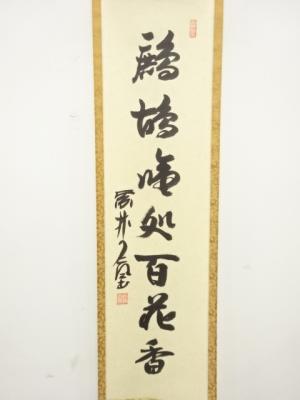 鷓鴣啼処百花香